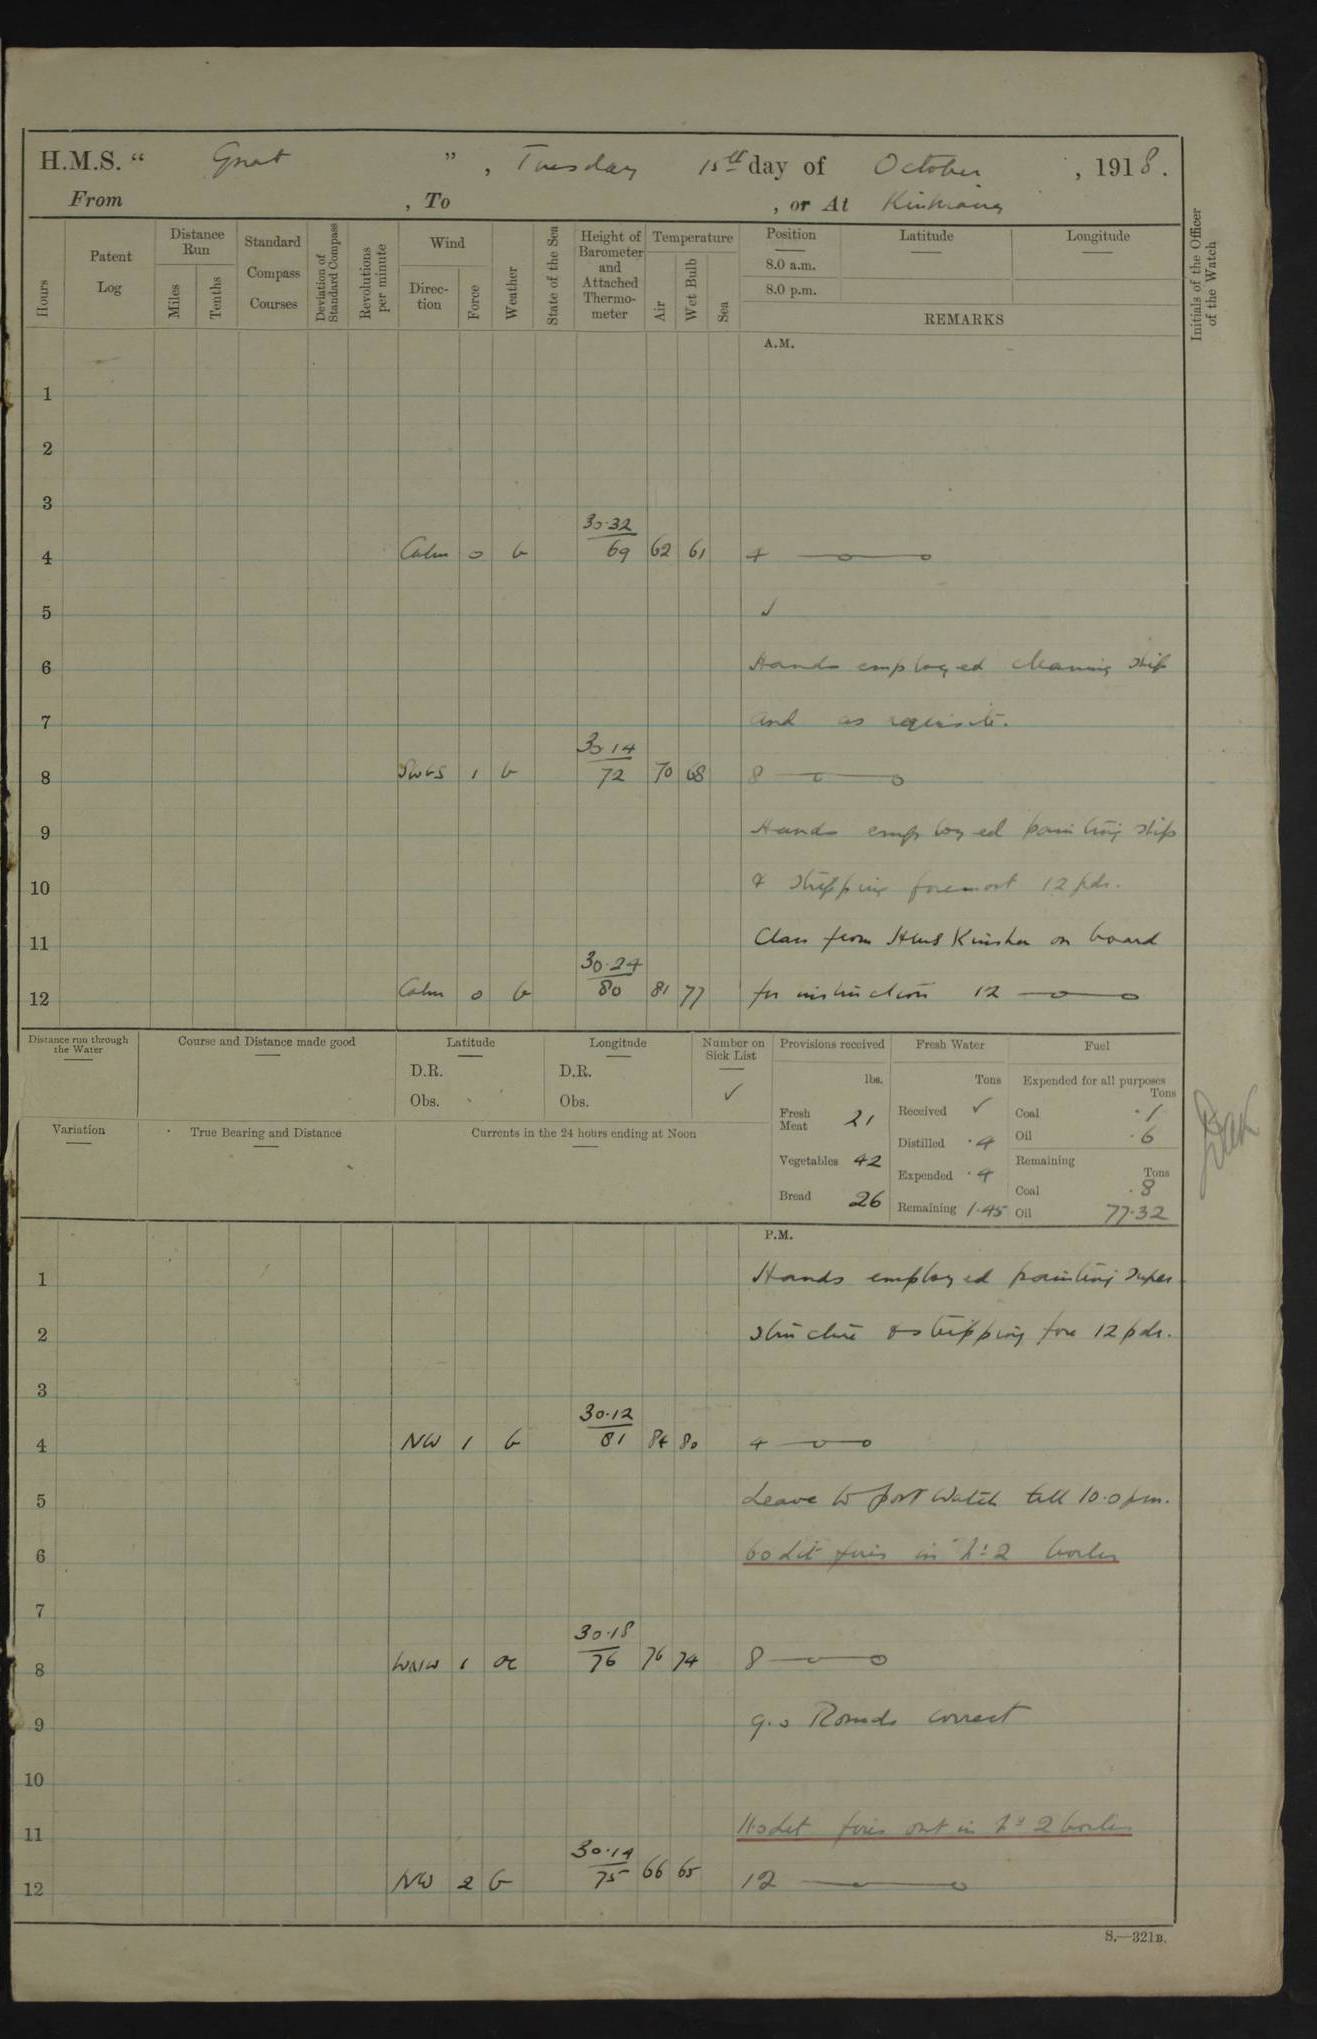 H.M.S. “ Gnat ” , Tuesday 15th day of October , 1918.
From , To , or At
Hours
Patent Log
Distance Run
Miles
Tenths
Standard Compass Courses
Deviation of Standard Compass
Revolutions per minute
Wind
Direction
Force
Weather
State of the Sea
Height of Barometer and Attached Thermometer
Temperature
Air
Wet Bulb
Sea
Position
8.0 a.m.
8.0 p.m.
Latitude
Longitude
REMARKS
Initials of the Officer of the Watch
A.M.
1
2
3
30.32
4 Calm 0 b 69 62 61 4
5 ✓
6 Hands employed cleaning ship
7 and as requisite.
30.14
8 SWbS 1 b 72 70 68 8
9 Hands employed painting ship
10 & stripping foremost 12 pdr.
11 Class from HMS Kinsha on board
30.24
12 Calm 0 b 80 81 77 for instruction 12
Distance run through the Water
Course and Distance made good
Latitude
D.R.
Obs.
Longitude
D.R.
Obs.
Number on Sick List
✓
Provisions received
lbs.
Fresh Meat 21
Vegetables 42
Bread 26
Fresh Water
Tons
Received ✓
Distilled .4
Expended .4
Remaining 1.45
Fuel
Expended for all purposes
Tons
Coal .1
Oil .6
Remaining
Tons
Coal .8
Oil 77.32
Variation
True Bearing and Distance
Currents in the 24 hours ending at Noon
P.M.
1 Hands employed painting super
2 structure & stripping fore 12 pdr.
3
30.12
4 NW 1 b 81 84 80 4
5 Leave to port watch till 10.0 pm.
6 6.0 Lit fires in No 2 boiler
7
30.18
8 WNW 1 oc 76 76 74 8
9 9.0 Rounds correct
10
11 11.0 Let fires out in No 2 boiler
30.14
12 NW 2 b 75 66 65 12
S.—321B.